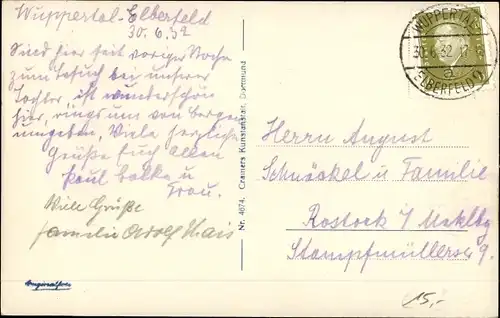 Wuppertal-Elberfeld
30.6.32
Sind hier seit voriger Woche
zum Besuch bei unserer
Tochter, ist wunderschön
hier, rings um von Bergen
umgeben, Viele herzliche
Grüße Euch Allen
Paul Balke u
Frau.
Viele Grüße
Familie Adolf
Originalfoto
Nr. 4674. Cramers Kunstanstalt, Dortmund
WUPPERTAL
30.6.32.17
a
(ELBERFELD)
Herrn August
Schnäckel u Familie
Rostock i/ Meklbg
Stampfmüllerstr 9.
15,-